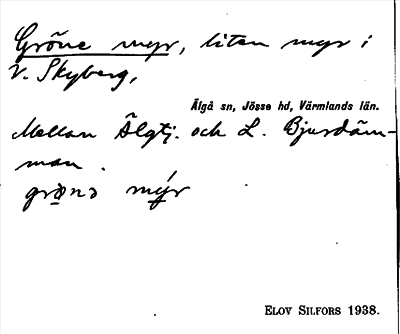 Gröne myr, liten myr i
V. Skyberg,
Älgå sn, Jösse hd, Värmlands län.
Mellan Älgtj. och L. Bjurdäm-
man.
grønə my̍r
ELOV SILFORS 1938.